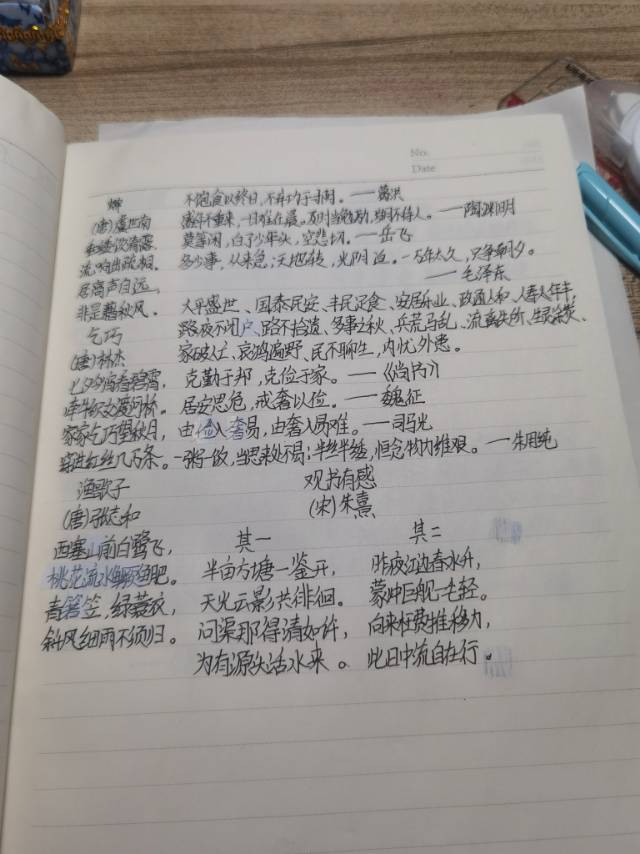 No.
Date
蝉
(唐)虞世南
垂緌饮清露,
流响出疏桐。
居高声自远,
非是藉秋风。
乞巧
(唐)林杰
七夕今宵看碧霄,
牵牛织女渡河桥。
家家乞巧望秋月,
穿进红丝几万条。
渔歌子
(唐)张志和
西塞山前白鹭飞,
桃花流水鳜鱼肥。
青箬笠,绿蓑衣,
斜风细雨不须归。
不饱食以终日,不弃功于寸阴。——葛洪
盛年不重来,一日难再晨。及时当勉励,岁月不待人。——陶渊明
莫等闲,白了少年头,空悲切。——岳飞
多少事,从来急;天地转,光阴迫。一万年太久,只争朝夕。
——毛泽东
太平盛世、国泰民安、丰民足食、安居乐业、政通人和、人寿年丰、
路夜不闭户、路不拾遗、多事之秋、兵荒马乱、流离失所、生灵涂炭、
家破人亡、哀鸿遍野、民不聊生、内忧外患。
克勤于邦,克俭于家。——《尚书》
居安思危,戒奢以俭。——魏征
由俭入奢易,由奢入俭难。——司马光
一粥一饭,当思来处不易;半丝半缕,恒念物力维艰。——朱用纯
观书有感
(宋)朱熹
其一
半亩方塘一鉴开,
天光云影共徘徊。
问渠那得清如许,
为有源头活水来。
其二
昨夜江边春水升,
蒙冲巨舰一毛轻。
向来枉费推移力,
此日中流自在行。